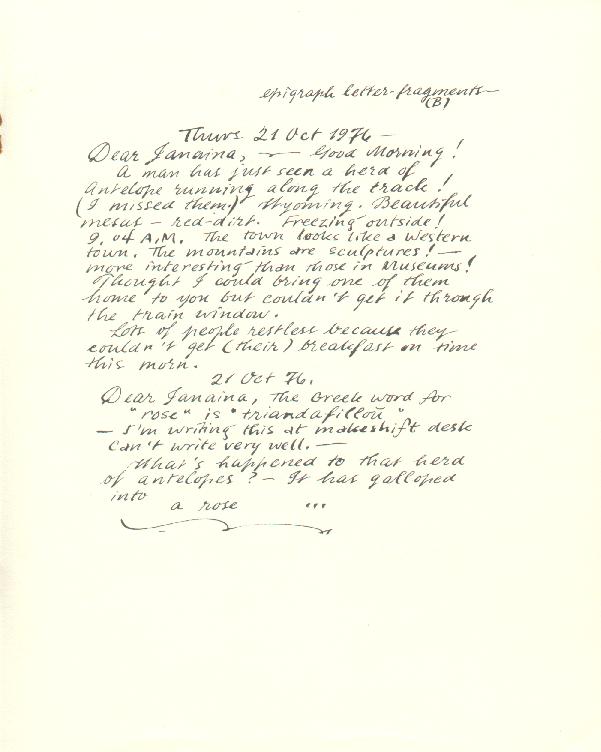 epigraph letter-fragments—
(B)
Thurs. 21 Oct 1976 —
Dear Janaina, —— Good Morning!
A man has just seen a herd of
Antelope running along the track!
(I missed them.) Wyoming. Beautiful
mesas — red-dirt. Freezing outside!
9.04 A.M. The town looks like a Western
town. The mountains are sculptures! —
more interesting than those in Museums!
Thought I could bring one of them
home to you but couldn't get it through
the train window.
Lots of people restless because they
couldn't get (their) breakfast on time
this morn.
21 Oct 76.
Dear Janaina, The Greek word for
"rose" is "triandafillou"
— I'm writing this at makeshift desk
can't write very well. —
What's happened to that herd
of antelopes? — It has galloped
into
a rose ...